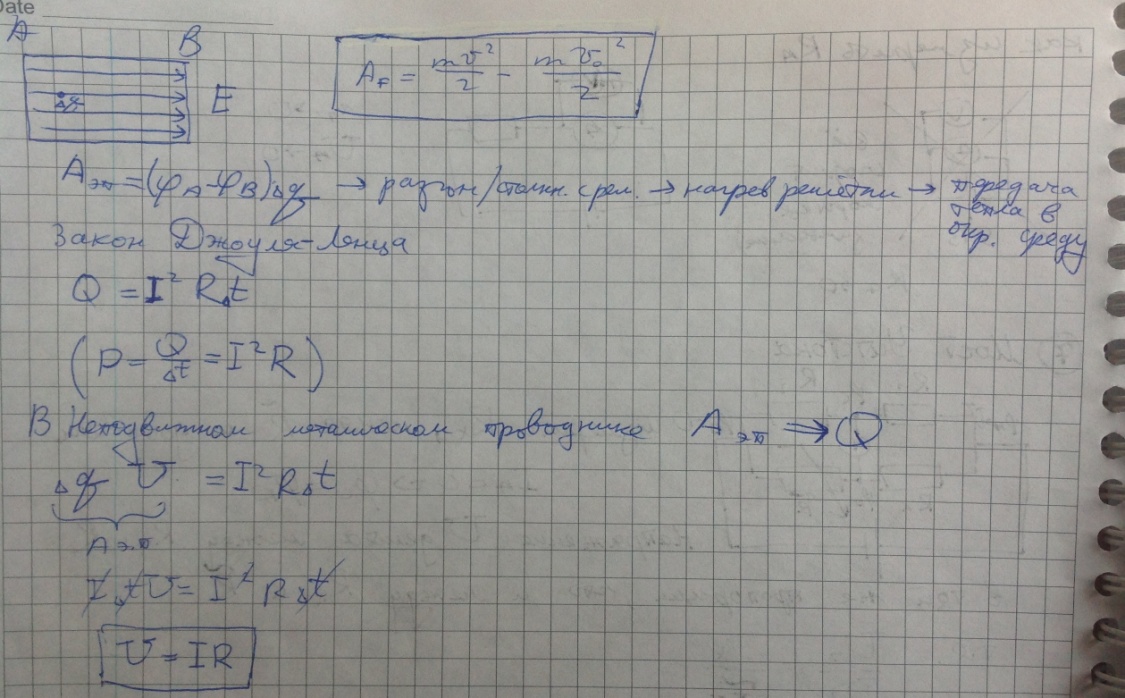 Date
A
B
E
Δq
A_F = mv²/2 - mv₀²/2
A_эп = (φ_A - φ_B)Δq → разгон/столкн. с реш. → нагрев решётки → передача
тепла в
окр. среду
Закон Джоуля-Ленца
Q = I² RΔt
(P = Q/Δt = I²R)
В Неподвижном металлоском проводнике A_эп ⇒ Q
Δq U = I² RΔt
A эп
IΔtU = I² RΔt
U = IR